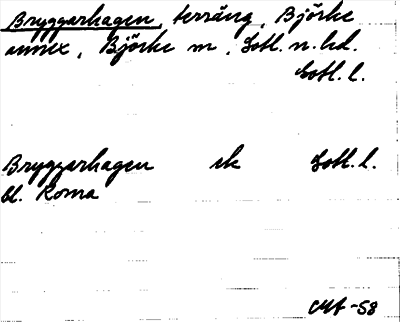 Bryggarhagen, terräng, Björke
annex, Björke m, Gotl. n. hd.
Gotl. l.
Bryggarhagen ek Gotl. l.
bl. Roma
-58